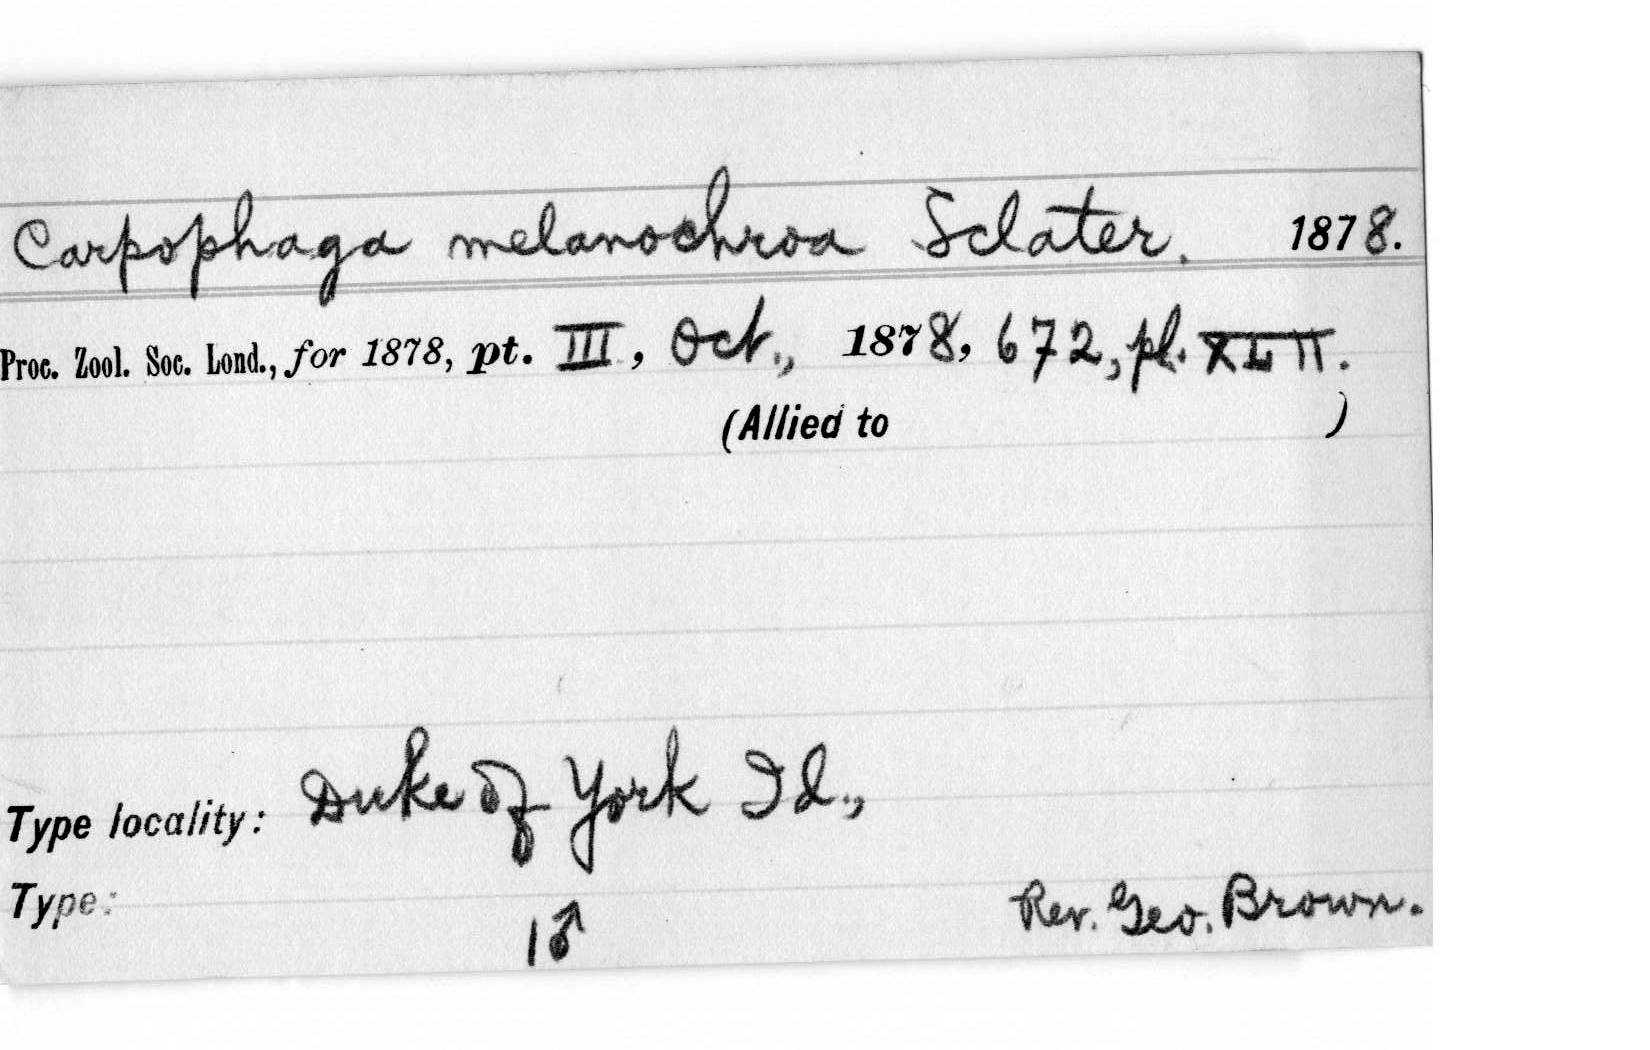 Carpophaga melanochroa Sclater. 1878.
Proc. Zool. Soc. Lond., for 1878, pt. III, Oct., 1878, 672, pl. XLII.
(Allied to )
Type locality: Duke of York Id.,
Type:
1♂ Rev. Geo. Brown.